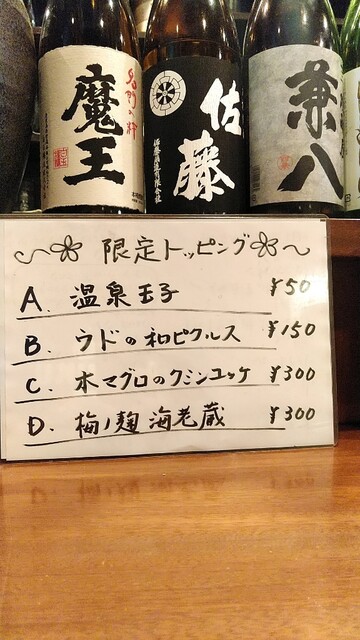 名門の粋
魔王
佐藤
佐藤酒造有限会社
兼八
限定トッピング
A. 温泉玉子 ¥50
B. ウドの和ピクルス ¥150
C. 本マグロのクミンユッケ ¥300
D. 梅ノ麹 海老蔵 ¥300